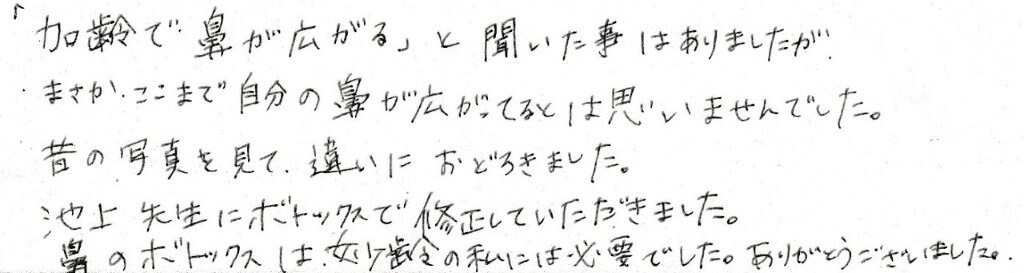 「加齢で鼻が広がる」と聞いた事はありましたが、
まさか、ここまで自分の鼻が広がってるとは思いませんでした。
昔の写真を見て、違いにおどろきました。
池上先生にボトックスで修正していただきました。
鼻のボトックスは、妙齢の私には必要でした。ありがとうございました。